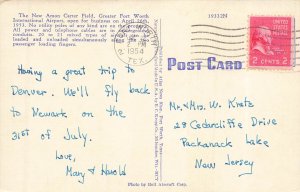 The New Amon Carter Field, Greater Fort Worth
International Airport, open for business on April 25,
1953. No utility poles of any kind are on the field.
All power and telephone cables are in underground
conduits. 20 or 21 mixed types of
loaded and unloaded simultaneously
passenger loading fingers.
19332N
1954
TEX.
UNITED STATES
2 CENTS 2
POST CARD
Having a great trip to
Denver. We'll fly back
to Newark on the
31st of July.
Love,
Mary & Harold
Mr. & Mrs. W. Kratz
28 Cedarcliffe Drive
Packanack Lake
New Jersey
Photo by Bell Aircraft Corp.